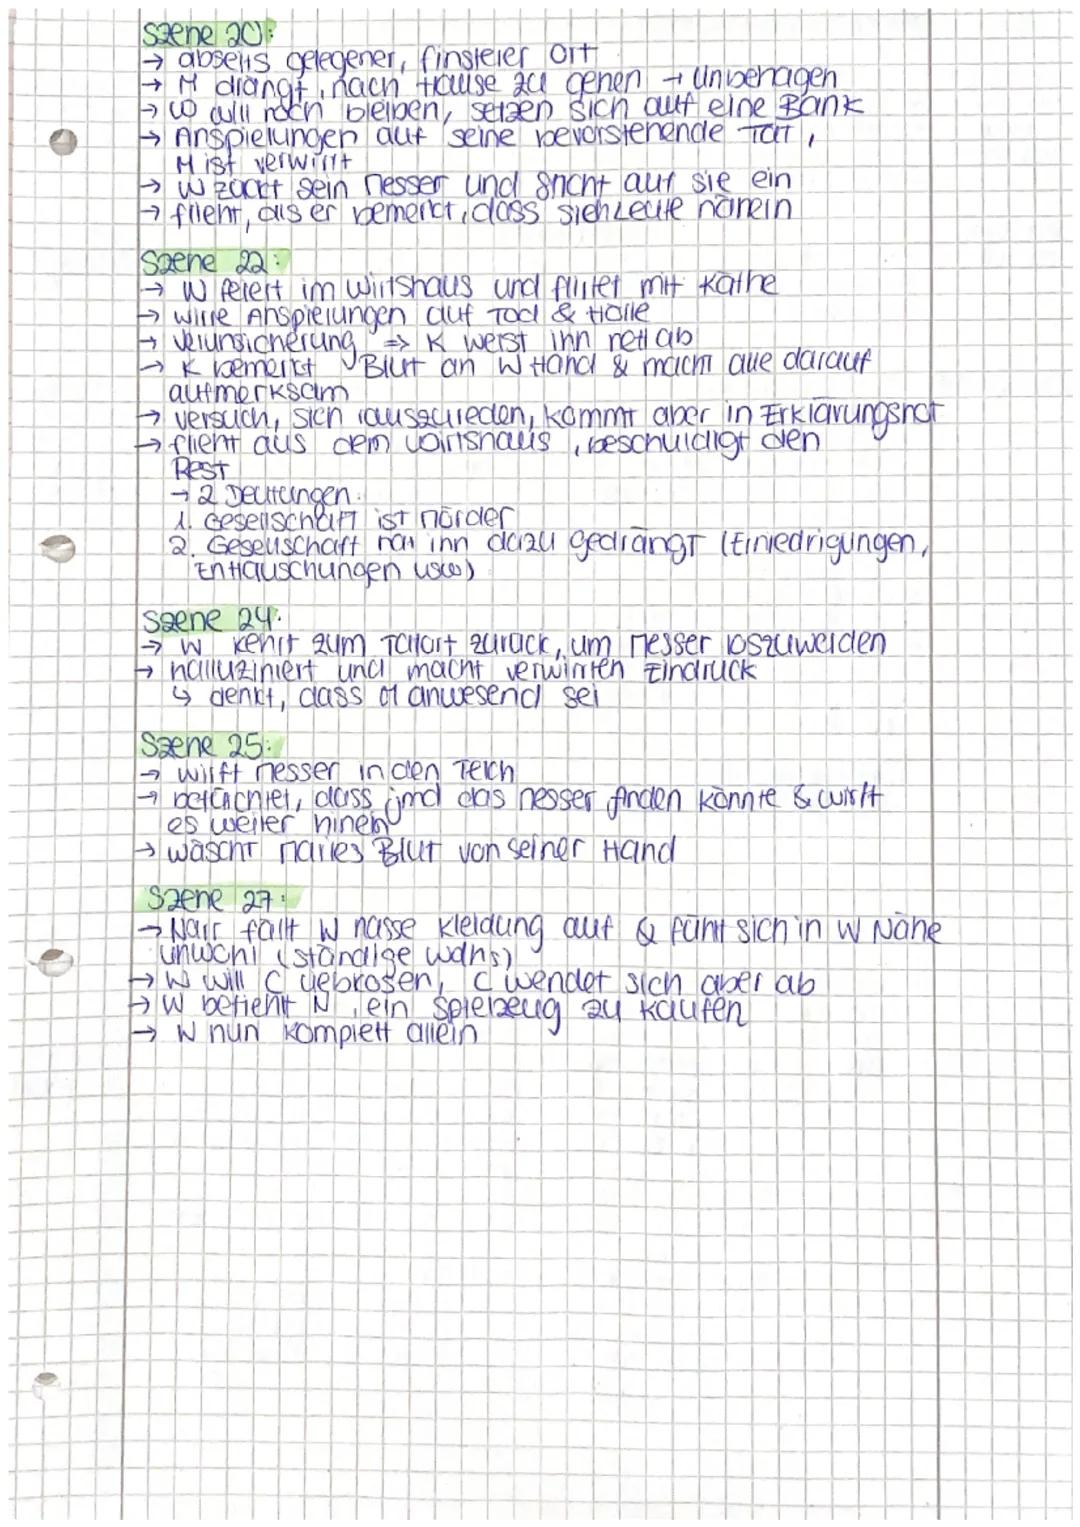 Szene 20:
→ abseits gelegener, finsterer Ort
→ M drängt, nach Hause zu gehen → Unbehagen
→ W will noch bleiben, setzen sich auf eine Bank
→ Anspielungen auf seine bevorstehende Tat,
M ist verwirrt
→ W zückt sein Messer und sticht auf sie ein
→ flieht, als er bemerkt, dass sich Leute nähern
Szene 22:
→ W feiert im Wirtshaus und flirtet mit Käthe
→ wirre Anspielungen auf Tod & Hölle
→ Verunsicherung => K weist ihn nett ab
→ K bemerkt Blut an W Hand & macht alle darauf
aufmerksam
→ versuch, sich rauszureden, kommt aber in Erklärungsnot
→ flieht aus dem Wirtshaus, beschuldigt den
Rest
→ 2 Deutungen:
1. Gesellschaft ist Mörder
2. Gesellschaft hat ihn dazu gedrängt (Erniedrigungen,
Enttäuschungen usw)
Szene 24:
→ W kehrt zum Tatort zurück, um Messer loszuwerden
→ halluziniert und macht verwirrten Eindruck
↳ denkt, dass M anwesend sei
Szene 25:
→ wirft Messer in den Teich
→ befürchtet, dass jmd das Messer finden könnte & wirft
es weiter hinein
→ wäscht Maries Blut von seiner Hand
Szene 27:
→ Narr fällt W nasse Kleidung auf & fühlt sich in W Nähe
unwohl (ständige Wahs)
→ W will C liebkosen, C wendet sich aber ab
→ W befiehlt N, ein Spielzeug zu kaufen
→ W nun komplett allein